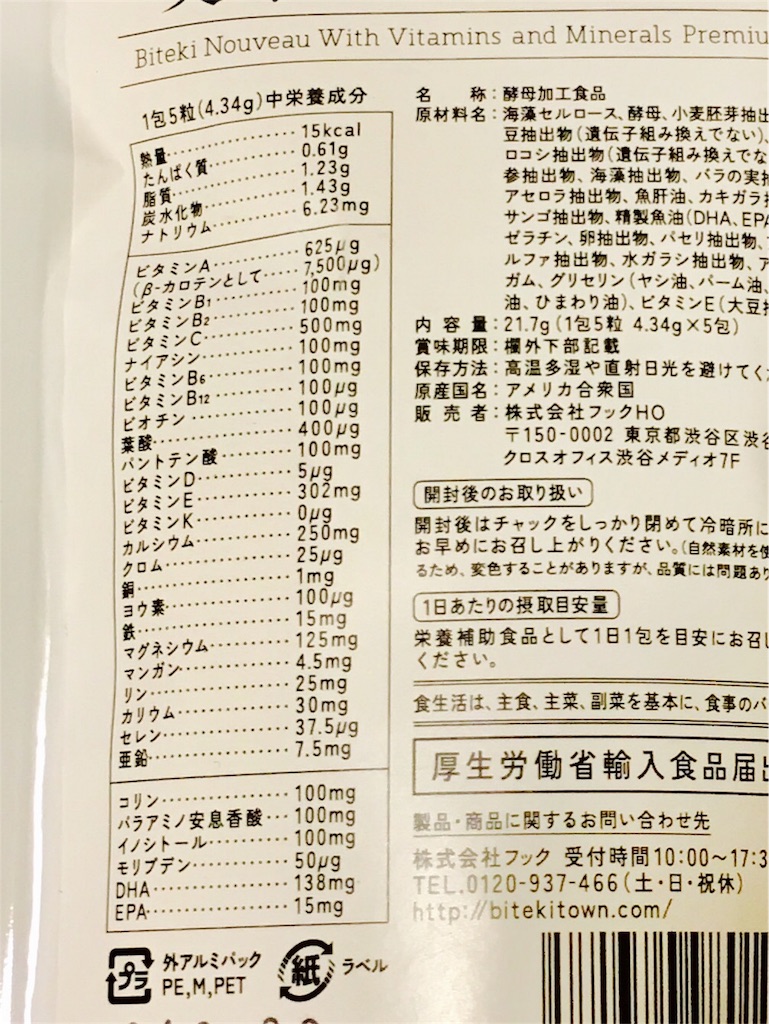 Biteki Nouveau With Vitamins and Minerals Premiu
1包5粒(4.34g)中栄養成分
熱量 15kcal
たんぱく質 0.61g
脂質 1.23g
炭水化物 1.43g
ナトリウム 6.23mg
ビタミンA 625μg
(β-カロテンとして 7,500μg)
ビタミンB1 100mg
ビタミンB2 100mg
ビタミンC 500mg
ナイアシン 100mg
ビタミンB6 100mg
ビタミンB12 100μg
ビオチン 100μg
葉酸 400μg
パントテン酸 100mg
ビタミンD 5μg
ビタミンE 302mg
ビタミンK 0μg
カルシウム 250mg
クロム 25μg
銅 1mg
ヨウ素 100μg
鉄 15mg
マグネシウム 125mg
マンガン 4.5mg
リン 25mg
カリウム 30mg
セレン 37.5μg
亜鉛 7.5mg
コリン 100mg
パラアミノ安息香酸 100mg
イノシトール 100mg
モリブデン 50μg
DHA 138mg
EPA 15mg
プラ 外アルミパック
PE,M,PET
紙 ラベル
名称：酵母加工食品
原材料名：海藻セルロース、酵母、小麦胚芽抽出
豆抽出物(遺伝子組み換えでない)、
ロコシ抽出物(遺伝子組み換えでな
参抽出物、海藻抽出物、バラの実抽
アセロラ抽出物、魚肝油、カキガラ
サンゴ抽出物、精製魚油(DHA、EPA
ゼラチン、卵抽出物、パセリ抽出物、
ルファ抽出物、水ガラシ抽出物、ア
ガム、グリセリン(ヤシ油、パーム油、
油、ひまわり油)、ビタミンE(大豆
内容量：21.7g(1包5粒 4.34g×5包)
賞味期限：欄外下部記載
保存方法：高温多湿や直射日光を避けてく
原産国名：アメリカ合衆国
販売者：株式会社フックHO
〒150-0002 東京都渋谷区渋谷
クロスオフィス渋谷メディオ7F
開封後のお取り扱い
開封後はチャックをしっかり閉めて冷暗所に
お早めにお召し上がりください。(自然素材を使
るため、変色することがありますが、品質には問題あり
1日あたりの摂取目安量
栄養補助食品として1日1包を目安にお召し
ください。
食生活は、主食、主菜、副菜を基本に、食事のバ
厚生労働省輸入食品届出
製品・商品に関するお問い合わせ先
株式会社フック 受付時間10:00～17:3
TEL.0120-937-466(土・日・祝休)
http://bitekitown.com/